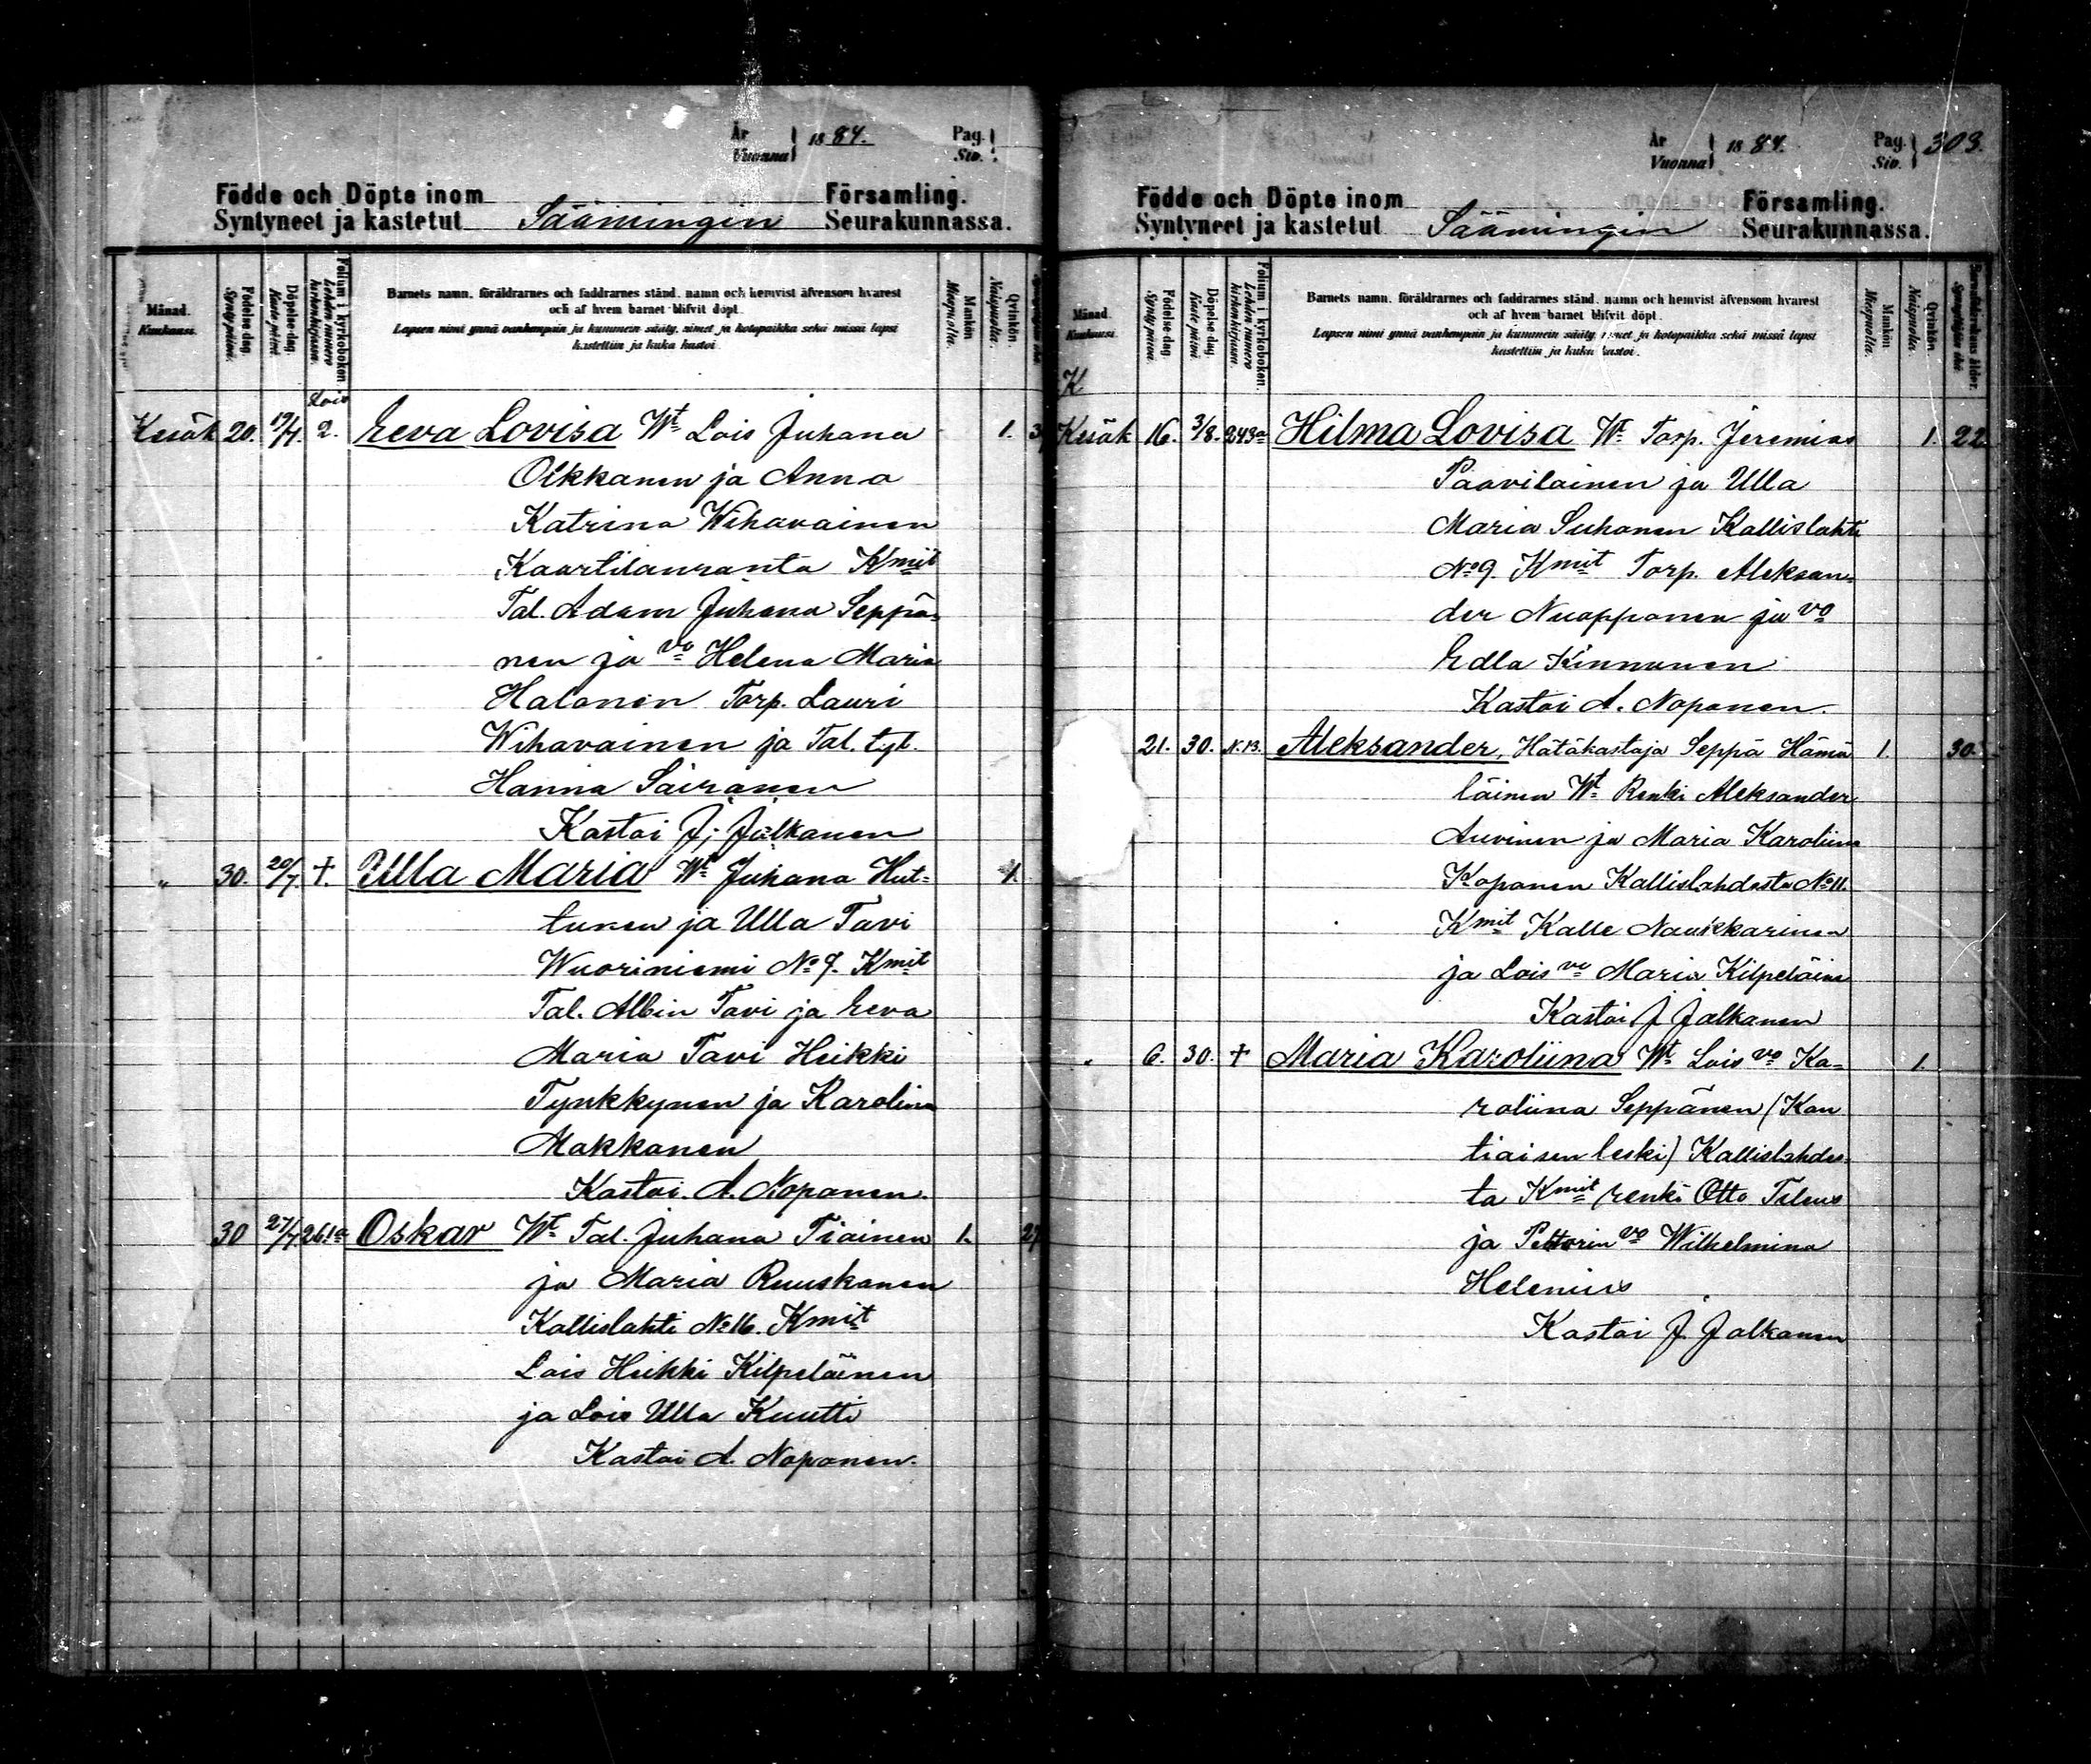 År
Vuonna } 1884. Pag.
Siv. }
Födde och Döpte inom Församling.
Syntyneet ja kastetut Säämingin Seurakunnassa.
Månad.
Kuukausi.
Födelse dag.
Synty päivä.
Döpelse dag.
Kaste päivä.
Folium i kyrkoboken.
Lehden numero kirkonkirjassa.
Barnets namn, föräldrarnes och faddrarnes stånd, namn och hemvist äfvensom hvarest
och af hvem barnet blifvit döpt.
Lapsen nimi ynnä vanhempain ja kummein sääty, nimet ja kotopaikka sekä missä lapsi
kastettiin ja kuka kastoi.
Mankön.
Miespuolia.
Qvinkön.
Naispuolia.
Lois
Kesäk 20. 19/7. 2. Eeva Lovisa Wt Lois Juhana 1. 3
Olkkanen ja Anna
Katrina Wihavainen
Kaartilanranta Kmit
Tal. Adam Juhana Seppä=
nen ja vo Helena Maria
Halonen Torp. Lauri
Wihavainen ja Tal. tyt.
Hanna Sairanen
Kastoi J. Jalkanen
„ 30. 20/7 +. Ulla Maria Wt Juhana Hut= 1.
tunen ja Ulla Tavi
Wuoriniemi No 9. Kmit
Tal. Albin Tavi ja Eeva
Maria Tavi Heikki
Tynkkynen ja Karolina
Makkonen
Kastoi. A. Noponen.
30 27/7 261a Oskar Wt Tal. Juhana Tiainen 1. 27
ja Maria Ruuskanen
Kallislahti No 16. Kmit
Lois Heikki Kilpeläinen
ja Lois Ulla Kuutti
Kastoi A. Noponen.
År
Vuonna } 1884. Pag.
Siv. } 303.
Födde och Döpte inom Församling.
Syntyneet ja kastetut Säämingin Seurakunnassa.
Månad.
Kuukausi.
Födelse dag.
Synty päivä.
Döpelse dag.
Kaste päivä.
Folium i kyrkoboken.
Lehden numero kirkonkirjassa.
Barnets namn, föräldrarnes och faddrarnes stånd, namn och hemvist äfvensom hvarest
och af hvem barnet blifvit döpt.
Lapsen nimi ynnä vanhempain ja kummein sääty, nimet ja kotopaikka sekä missä lapsi
kastettiin ja kuka kastoi.
Mankön
Miespuolia.
Qvinkön
Naispuolia.
K
Kesäk 16. 3/8. 243a Hilma Lovisa Wt Torp. Jeremias 1. 22
Paavilainen ja Ulla
Maria Suhonen Kallislahti
No 9. Kmit Torp. Aleksan=
der Nuopponen ja vo
Edla Kinnunen
Kastoi A. Noponen.
21. 30. N.13. Aleksander, Hätäkastaja Seppä Hämä 1. 30.
läinen Wt Renki Aleksander
Auvinen ja Maria Karoliina
Koponen Kallislahdesta No 11.
Kmit Kalle Naukkarinen
ja Lois vo Maria Kilpeläin
Kastoi J Jalkanen
„ 6. 30. + Maria Karoliina Wt Lois vo Ka= 1.
roliina Seppänen (Kon
tiaisen leski) Kallislahdes=
ta Kmit renki Otto
ja vo Wilhelmina
Helenius
Kastoi J Jalkanen